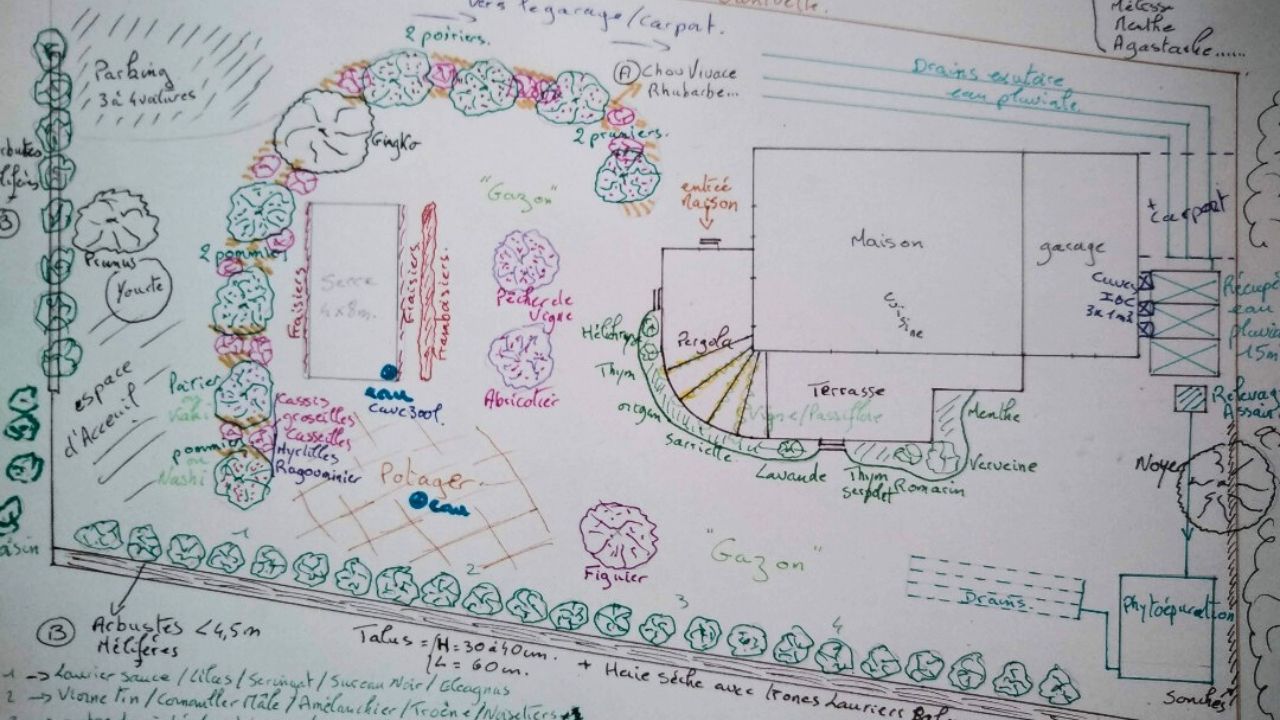 Vers le garage/Carport.
Mélisse
Menthe
Agastache......
2 poiriers.
Parking
3 à 4 voitures
A Chou Vivace
Rhubarbe...
Drains exutoire
eau pluviale
Gingko
2 pruniers.
"Gazon"
entrée
Maison
B
Prunus
Yourte
2 pommiers
Fraisiers
Serre
4 x 8m.
Fraisiers
Framboisiers.
Pêcher de
Vigne
Maison
garage
+ Carport
Cuisine
Cuves
IBC
3x1m3
Récupé
eau
pluvia
15m
Hélichryse
Pergola
Thym
origan
Abricotier
Terrasse
Vigne/Passiflore
Menthe
Relevage
Assain
espace
d'Accueil
Poirier
ou
eau
cuve 300l.
Cassis
groseilles
Casseilles
Myrtilles
Ragouminier
pommier
ou
Nashi
Sarriette
Lavande
Thym
Serpolet
Romarin
Verveine
Noyer
Potager.
eau
Figuier
"Gazon"
Drains.
Phytoépuration
1
2
3
4
B Arbustes <4,5m
Mélifères
Talus = H = 30 à 40cm.
L = 60cm.
+ Haie Sèche avec troncs Lauriers
1 -> Laurier sauce / Lilas / Seringat / Sureau Noir / Eleagnus
2 -> Viorne Tin / Cornouiller Mâle / Amélanchier / Troène / Noisetiers